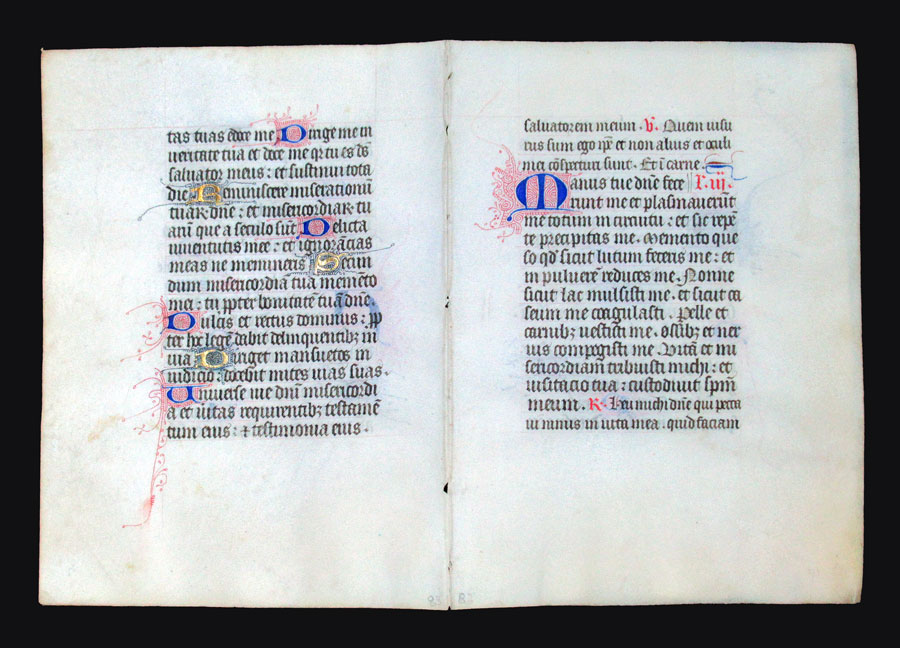 tas tuas edoce me Dirige me in
veritate tua et doce me qr tu es ds
salvator meus : et sustinui tota
die Reminiscere miserationū
tuaꝝ dñe : et misericordiaꝝ tu
arū que a seculo sūt Delicta
iuventutis mee : et ignorācias
meas ne memineris Secun
dum misericordia tua memēto
mei : tu ꝓpter bonitatē tuā dñe
Dulcis et rectus dominus : ꝓ
ter hoc legē dabit delinquentibꝫ in
via Diriget mansuetos in
iudicio : docebit mites vias suas
Universe vie dnī misericordi
a et vitas requirentibꝫ testamē
tum eius : et testimonia eius .
salvatorem meum . V. Quem visu
rus sum ego ip̄e et non alius et oculi
mei cōspecturi sunt . Et ī carne .
Manus tue dñe fece l. iij.
runt me et plasmaverūt
me totum in circuitu : et sic repē
te precipitas me . Memento que
so qd sicut lutum feceris me : et
in pulverē reduces me . Nonne
sicut lac mulsisti me . et sicut ca
seum me coagulasti . Pelle et
carnibꝫ vestisti me . ossibꝫ et ner
vis compegisti me Vitā et mi
sericordiam tribuisti michi : et
visitacio tua : custodivit spm̄
meum . R. Heu michi dñe qui pecca
vi nimis in vita mea . quid faciam